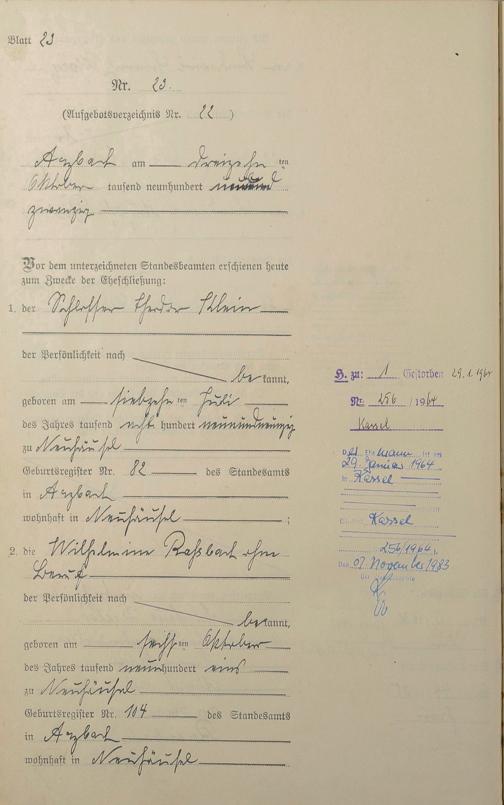 Blatt 23
Nr. 23.
(Aufgebotsverzeichnis Nr. 22)
Arzbach am dreizehnten
Oktober tausend neunhundert
zwanzig
Vor dem unterzeichneten Standesbeamten erschienen heute
zum Zwecke der Eheschließung:
1. der Schlosser Theodor Klein
der Persönlichkeit nach
bekannt,
geboren am siebzehnten Juli
des Jahres tausend acht hundert neunundneunzig
zu Neuhäusel
Geburtsregister Nr. 82 des Standesamts
in Arzbach
wohnhaft in Neuhäusel;
2. die Wilhelmine Raßbach ohne
Beruf
der Persönlichkeit nach
bekannt,
geboren am sechsten Oktober
des Jahres tausend neunhundert eins
zu Neuhäusel
Geburtsregister Nr. 104 des Standesamts
in Arzbach
wohnhaft in Neuhäusel
H. zu: 1 Gestorben 29.1.1964
Nr. 256/1964
Kassel
Ehemann ist am
29. Januar 1964
in Kassel
Kassel
256/1964
Den 07. November 1983